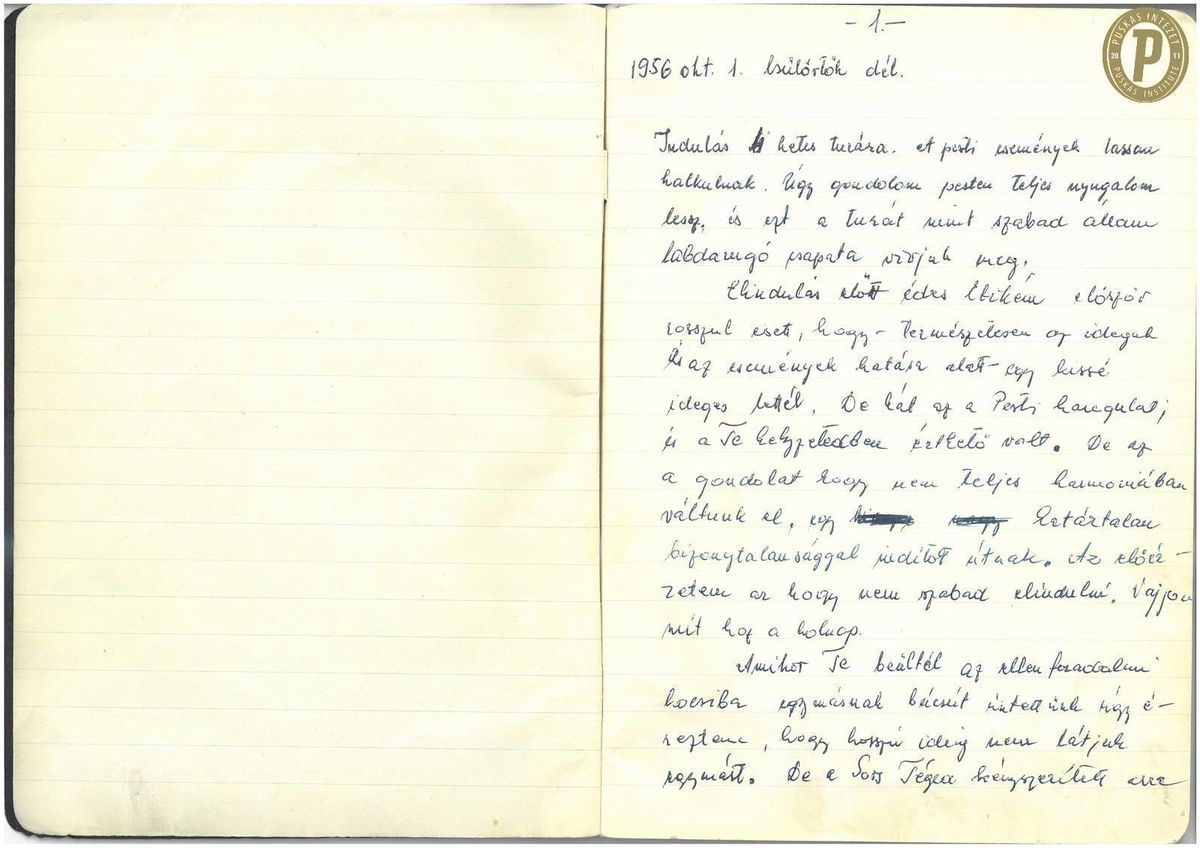 - 1.-
PUSKÁS INTÉZET
2011
P
PUSKAS INSTITUTE
1956 okt. 1. Csütörtök dél.
Indulás 4 hetes turára. A pesti események lassan
halkulnak. Úgy gondolom pesten teljes nyugalom
lesz, és ezt a turát mint szabad állam
labdarugó csapata vívjuk meg.
Elindulás előtt édes először
rosszul esett, hogy - természetesen az idegek
és az események hatása alatt - egy kissé
ideges lettél. De hát az a Pesti hangulat,
és a Te helyzetedben érthető volt. De az
a gondolat hogy nem teljes harmoniában
váltunk el, egy határtalan
bizonytalansággal indított útnak. Az előér-
zetem az hogy nem szabad elindulni. Vajjon
mit hoz a holnap.
Amikor Te beültél az ellen foradalmi
kocsiba egymásnak búcsút intettünk úgy é-
reztem, hogy hosszú ideig nem látjuk
egymást. De a Sors Téged kényszerített arra